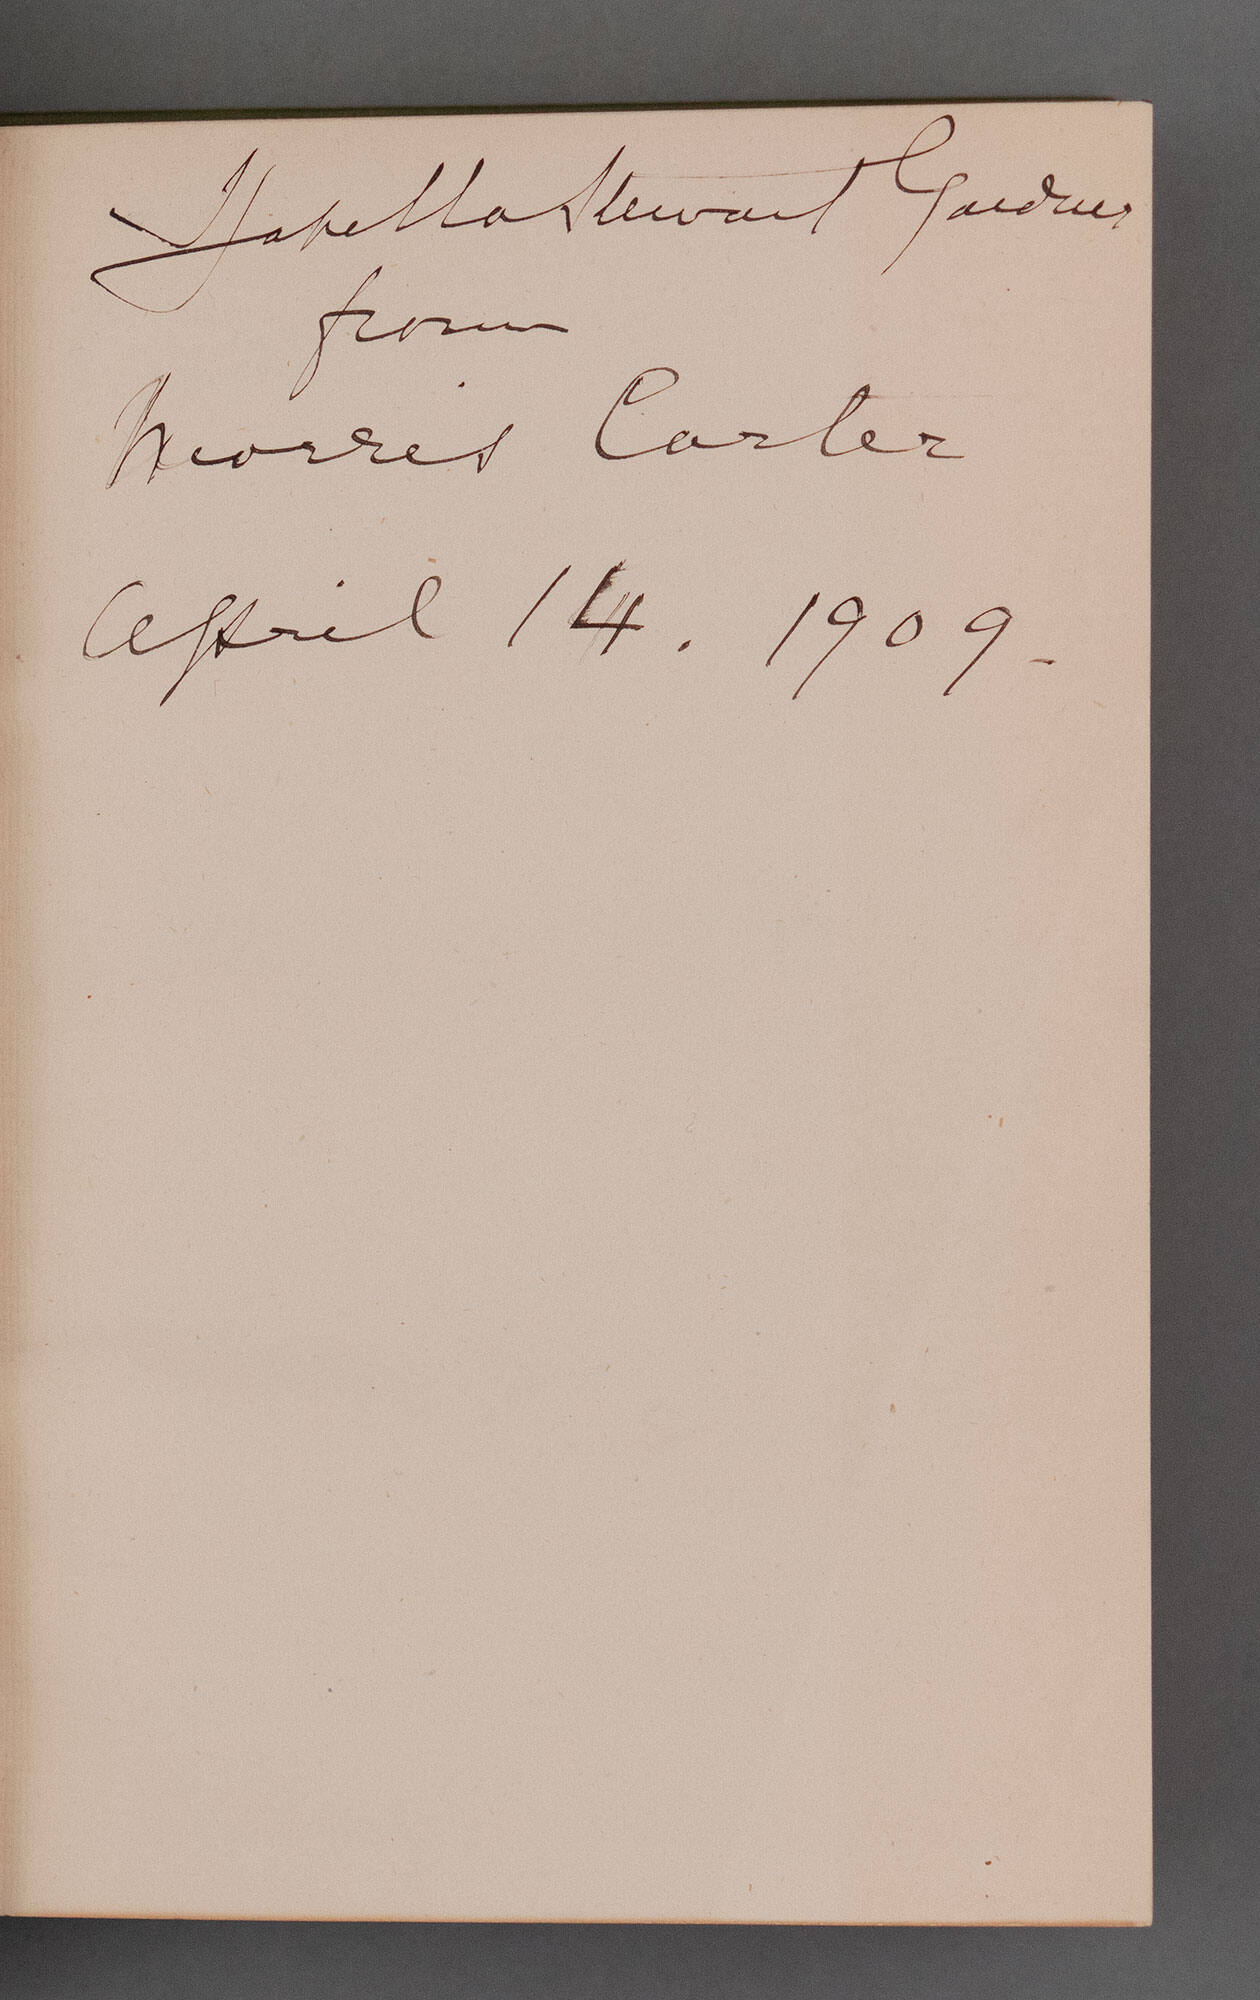 Isabella Stewart Gardner
from
Morris Carter
April 14. 1909-